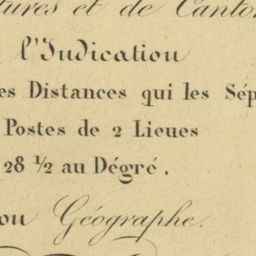 tures et de Canton
l'Indication
es Distances qui les Sép
Postes de 2 Lieues
28 ½ au Dégré.
ou Géographe.